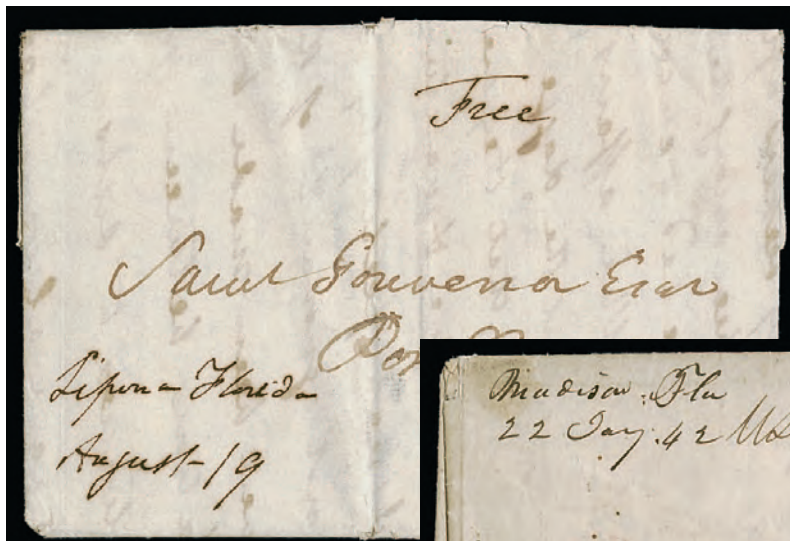 Free
Saml Gouverneur Esqr
Lipona Florida
August 19
Madison. Fla
22 Jany. 42